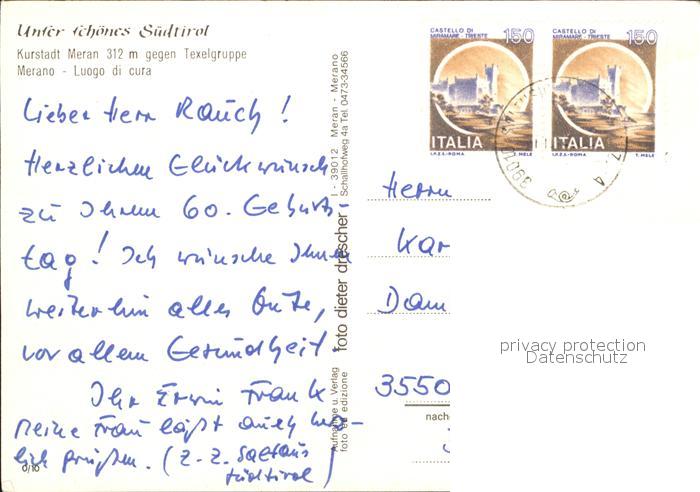 Unser schönes Südtirol
Kurstadt Meran 312 m gegen Texelgruppe
Merano - Luogo di cura
Lieber Herr Rauch!
Herzlichen Glückwunsch
zu Ihrem 60. Geburts-
tag! Ich wünsche Ihnen
weiterhin alles Gute,
vor allem Gesundheit.
Ihr Erwin Frank
Meine Frau läßt auch herz-
lich grüßen. (z. Z. Saltaus
Südtirol)
0/10
Aufnahme u. Verlag
foto ed edizione
foto dieter drescher
I - 39012 Meran - Merano
Schallhofweg 4a Tel. 0473-34566
CASTELLO DI
MIRAMARE - TRIESTE
150
ITALIA
I.P.Z.S.-ROMA
T. MELE
CASTELLO DI
MIRAMARE - TRIESTE
150
ITALIA
I.P.Z.S.-ROMA
T. MELE
Herrn
Kar
Dam
3550
nach
privacy protection
Datenschutz